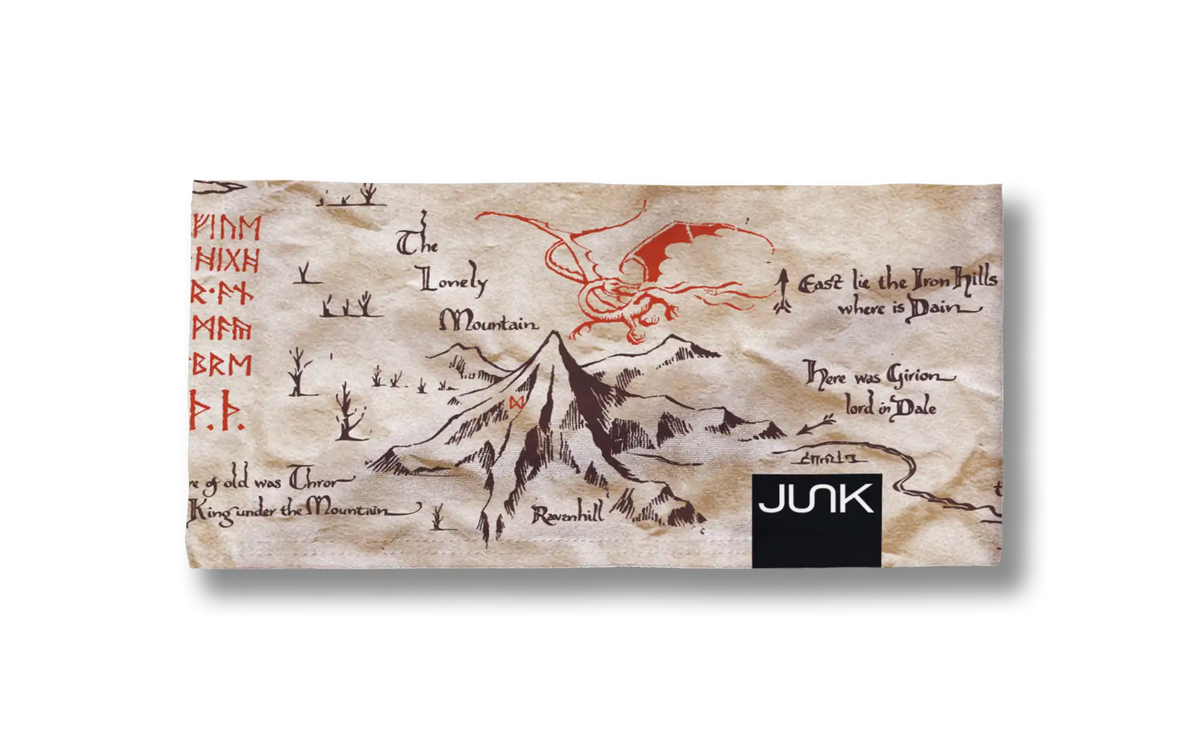 ᚠᛁᚢᛖ
ᚻᛁᚷᚻ
ᚱ·ᚪᚾ
ᛗᚪᚣ
ᛒᚱᛖ
ᚦ.ᚦ.
The
Lonely
Mountain
ᛞ
East lie the Iron Hills
where is Dain
Here was Girion
lord in Dale
re of old was Thror
King under the Mountain
Ravenhill
JUNK